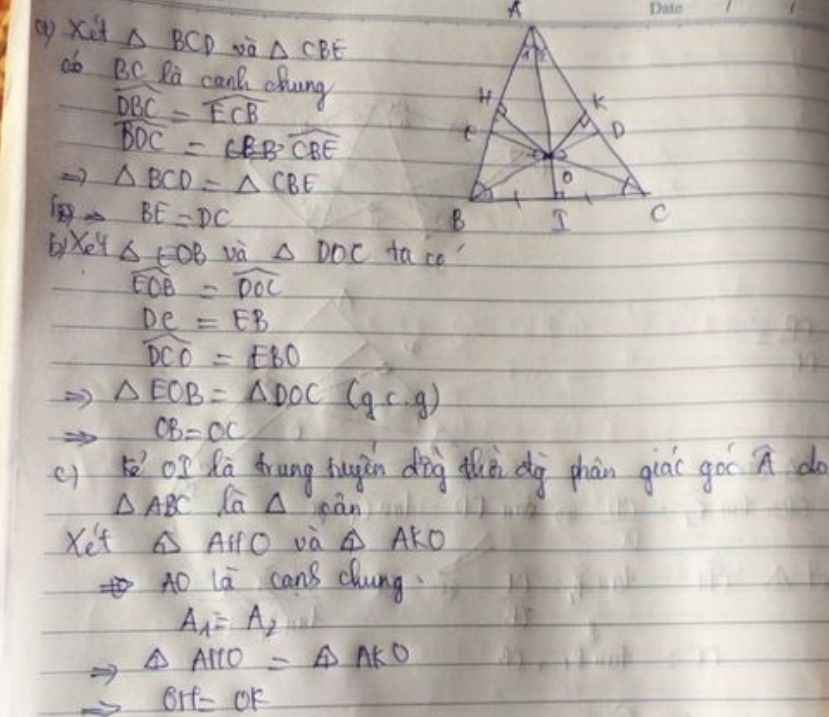 Date / /
a) Xét Δ BCD và Δ CBE
có BC là cạnh chung
DBC = ECB
BDC = CBE
=> Δ BCD = Δ CBE
=> BE = DC
b) Xét Δ EOB và Δ DOC ta có
EOB = DOC
DC = EB
DCO = EBO
=> Δ EOB = Δ DOC (g.c.g)
=> OB = OC
c) Kẻ OI là trung tuyến đồng thời đg phân giác góc A do
Δ ABC là Δ cân
Xét Δ AHO và Δ AKO
=> AO là cạnh chung.
A1 = A2
=> Δ AHO = Δ AKO
=> OH = OK
A
H
K
E
D
O
B
I
C